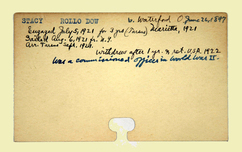 STACY ROLLO DOW w. Waterford O June 26, 1897
Engaged July 5, 1921 for 3 yrs (Tarsus) Marietta, 1921
Sailed Aug. 6, 1921 fr. N.Y.
Arr. Tarsus Sept. 1921.
withdrew after 1 yr. & ret. U.S.A. 1922
Was a commissioned officer in World War II.